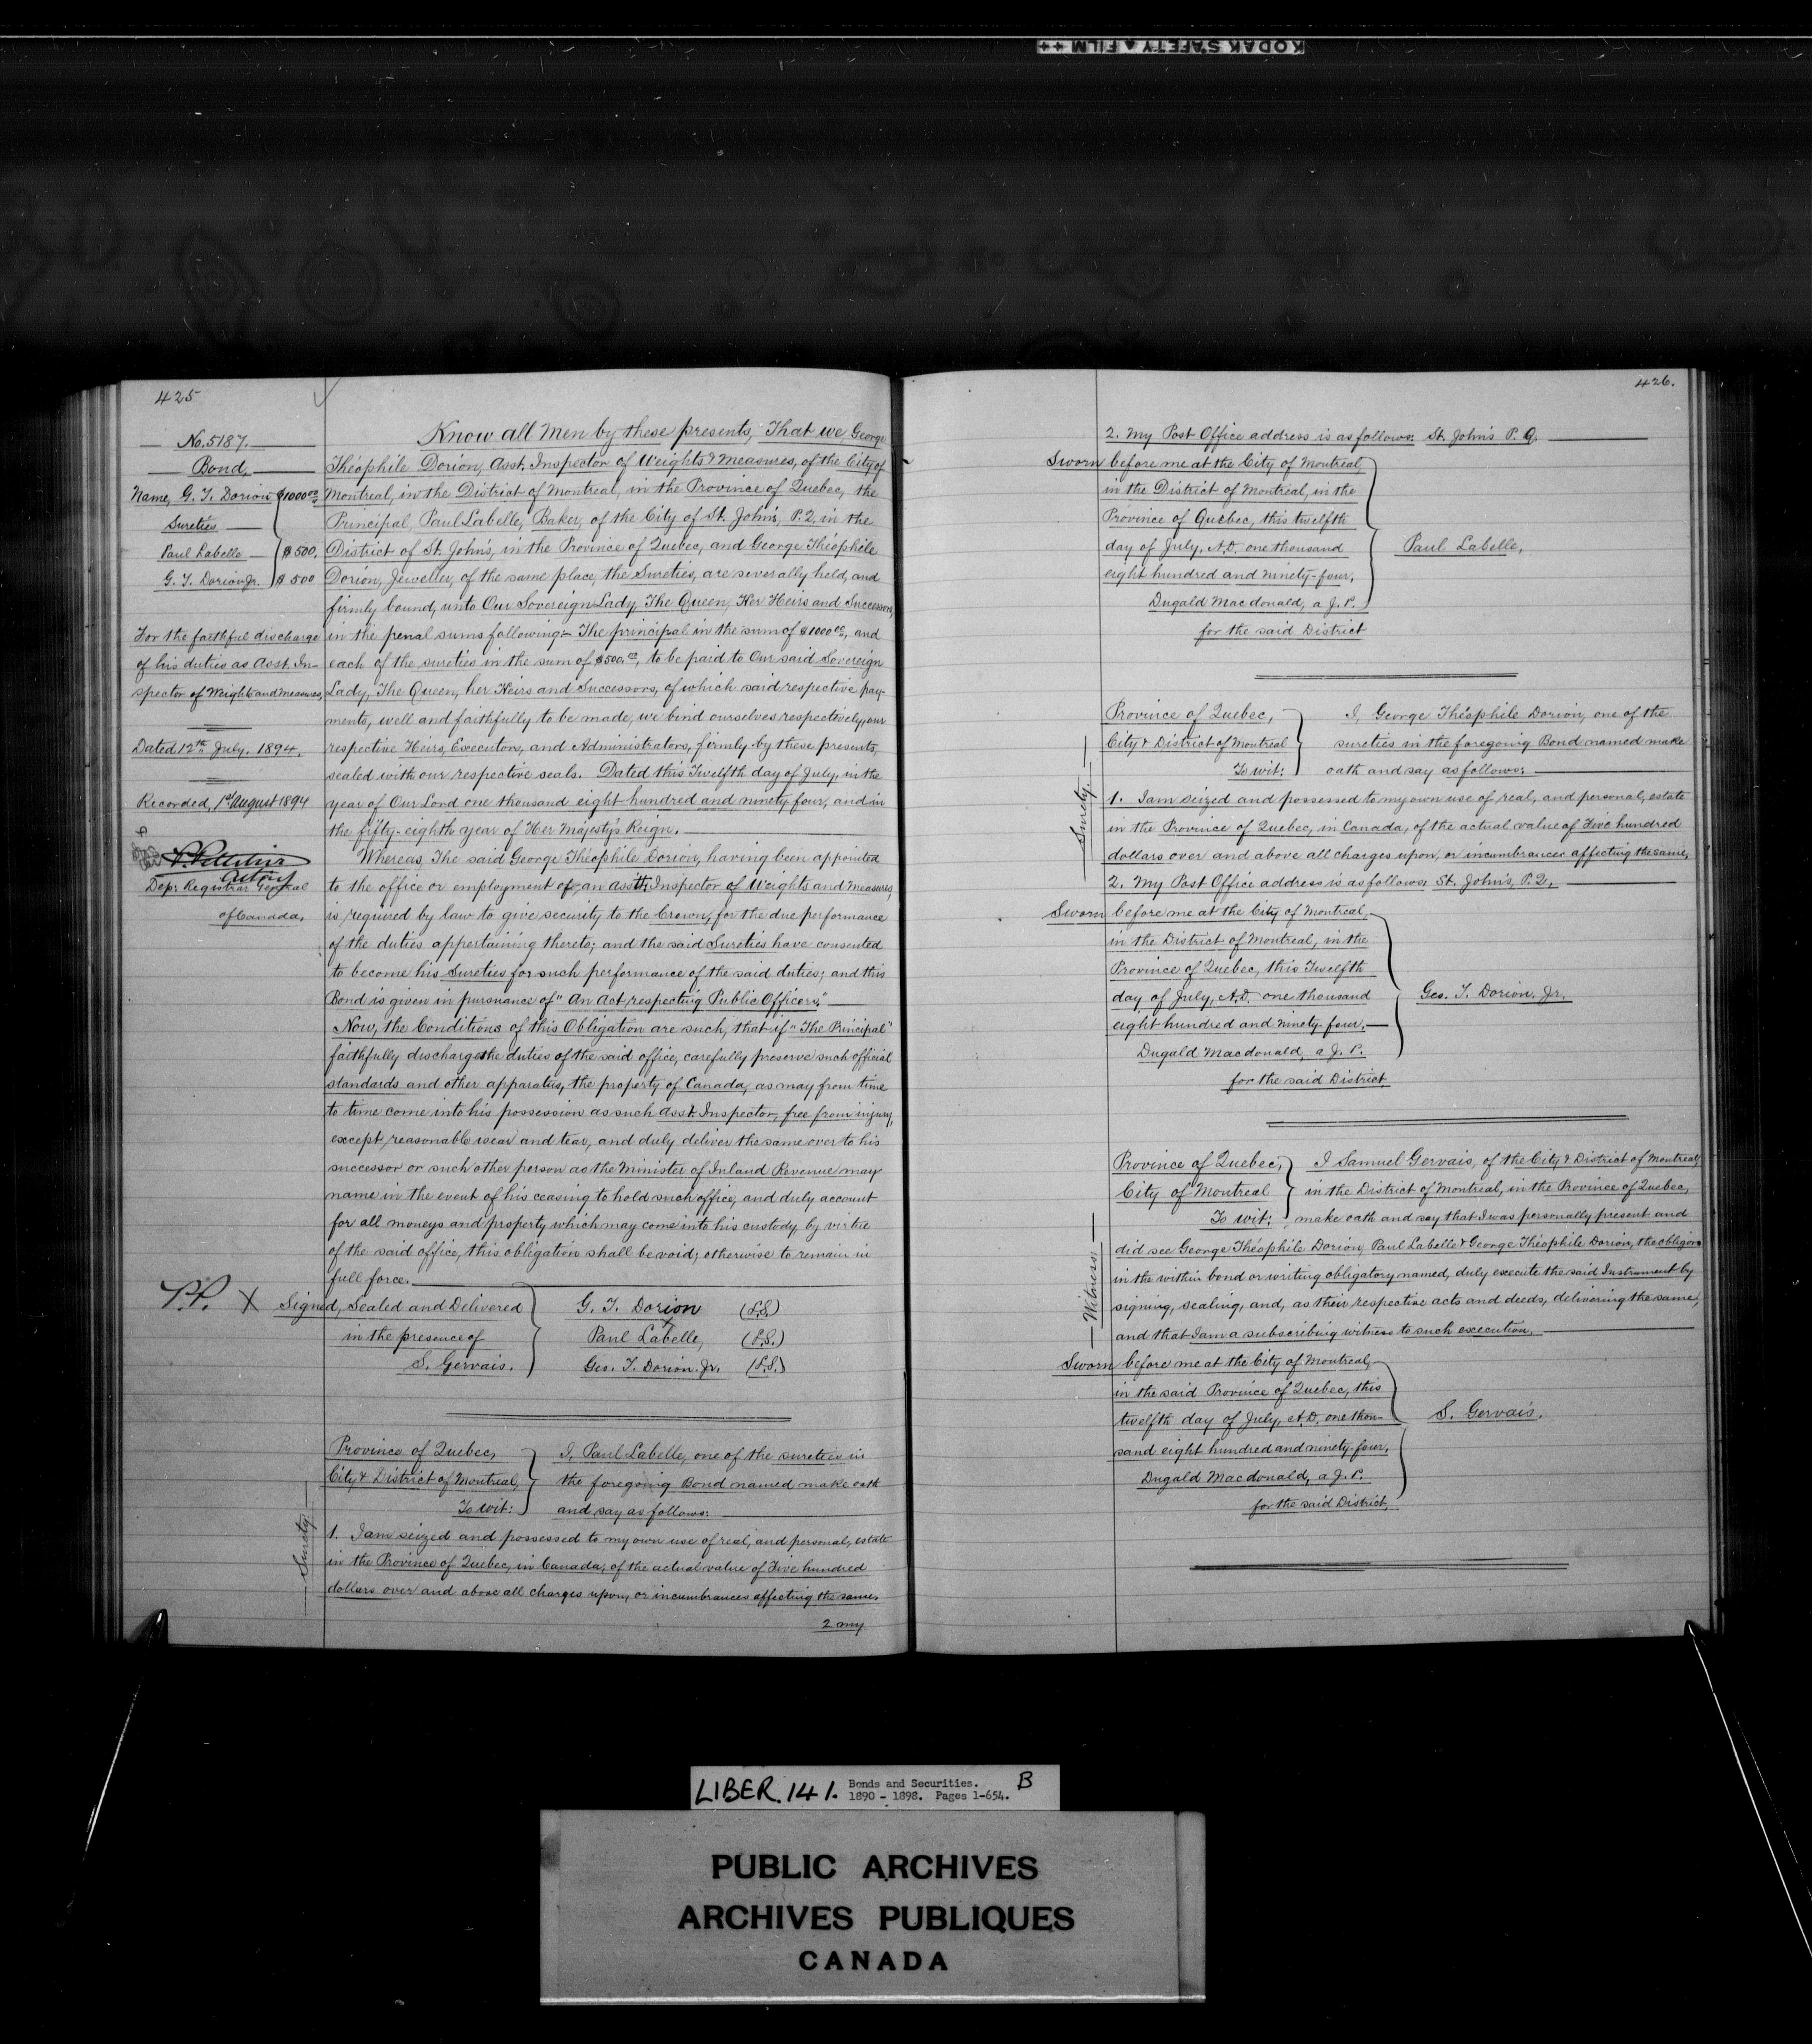 KODAK SAFETY FILM ++
425
No. 5187.
Bond,
Name, G. T. Dorion $1000.00
Sureties
Paul Labelle $500.
G. T. Dorion Jr. $500
For the faithful discharge
of his duties as Asst. In-
spector of Weights and Measures,
Dated 12th July, 1894.
Recorded, 1st August 1894
Acting
Dep: Registrar General
of Canada,
Know all Men by these presents, That we, George
Théophile Dorion, Asst. Inspector of Weights & Measures, of the City of
Montreal, in the District of Montreal, in the Province of Quebec, the
Principal, Paul Labelle, Baker, of the City of St. John's, P.Q. in the
District of St. John's, in the Province of Quebec, and George Théophile
Dorion, Jeweller, of the same place, the Sureties, are severally held, and
firmly bound, unto Our Sovereign Lady The Queen, Her Heirs and Successors,
in the penal sums following:- The principal in the sum of $1000.00, and
each of the sureties in the sum of $500.00, to be paid to Our said Sovereign
Lady, The Queen, her Heirs and Successors, of which said respective pay-
ments, well and faithfully to be made, we bind ourselves respectively, our
respective Heirs, Executors, and Administrators, firmly by these presents,
sealed with our respective seals. Dated this Twelfth day of July, in the
year of Our Lord one thousand eight hundred and ninety four, and in
the fifty-eighth year of Her Majesty's Reign.
Whereas, The said George Théophile Dorion, having been appointed
to the office or employment of an Asst. Inspector of Weights and Measures,
is required by law to give security to the Crown, for the due performance
of the duties appertaining thereto; and the said Sureties have consented
to become his Sureties for such performance of the said duties; and this
Bond is given in pursuance of "An Act respecting Public Officers."
Now, the Conditions of this Obligation are such, that if "The Principal"
faithfully discharges the duties of the said office, carefully preserve such official
standards and other apparatus, the property of Canada, as may from time
to time come into his possession as such Asst. Inspector, free from injury,
except reasonable wear and tear, and duly deliver the same over to his
successor or such other person as the Minister of Inland Revenue may
name in the event of his ceasing to hold such office, and duly account
for all moneys and property which may come into his custody by virtue
of the said office, this obligation shall be void; otherwise to remain in
full force.
P.P. X Signed, Sealed and Delivered G. T. Dorion (L.S.)
in the presence of Paul Labelle, (L.S.)
S. Gervais. Geo. T. Dorion. Jr. (L.S.)
Province of Quebec, I, Paul Labelle, one of the sureties in
City & District of Montreal, the foregoing Bond named make oath
To wit: and say as follows:
Surety
1. I am seized and possessed to my own use of real, and personal, estate
in the Province of Quebec, in Canada, of the actual value of Five hundred
dollars over and above all charges upon, or incumbrances affecting the same.
2 my
426.
2. My Post Office address is as follows: St. John's P. Q.
Sworn before me at the City of Montreal,
in the District of Montreal, in the
Province of Quebec, this twelfth
day of July, A.D. one thousand Paul Labelle,
eight hundred and ninety-four,
Dugald Macdonald, a J. P.
for the said District
Province of Quebec, I, George Théophile Dorion, one of the
City & District of Montreal sureties in the foregoing Bond named make
To wit: oath and say as follows:
Surety.
1. I am seized and possessed to my own use of real, and personal, estate
in the Province of Quebec, in Canada, of the actual value of Five hundred
dollars over and above all charges upon, or incumbrances affecting the same,
2. My Post Office address is as follows: St. John's, P.Q.
Sworn before me at the City of Montreal,
in the District of Montreal, in the
Province of Quebec, this Twelfth
day of July, A.D. one thousand Geo. T. Dorion. Jr.
eight hundred and ninety-four,
Dugald Macdonald, a J. P.
for the said District
Province of Quebec, I Samuel Gervais, of the City & District of Montreal,
City of Montreal in the District of Montreal, in the Province of Quebec,
To wit: make oath and say that I was personally present and
Witness
did see George Théophile Dorion, Paul Labelle & George Théophile Dorion, the obligors
in the within bond or writing obligatory named, duly execute the said Instrument by
signing, sealing, and, as their respective acts and deeds, delivering the same,
and that I am a subscribing witness to such execution.
Sworn before me at the City of Montreal,
in the said Province of Quebec, this
twelfth day of July, A.D. one thou- S. Gervais.
sand eight hundred and ninety-four,
Dugald Macdonald, a J. P.
for the said District,
LIBER. 141. Bonds and Securities. B
1890 - 1898. Pages 1-654.
PUBLIC ARCHIVES
ARCHIVES PUBLIQUES
CANADA